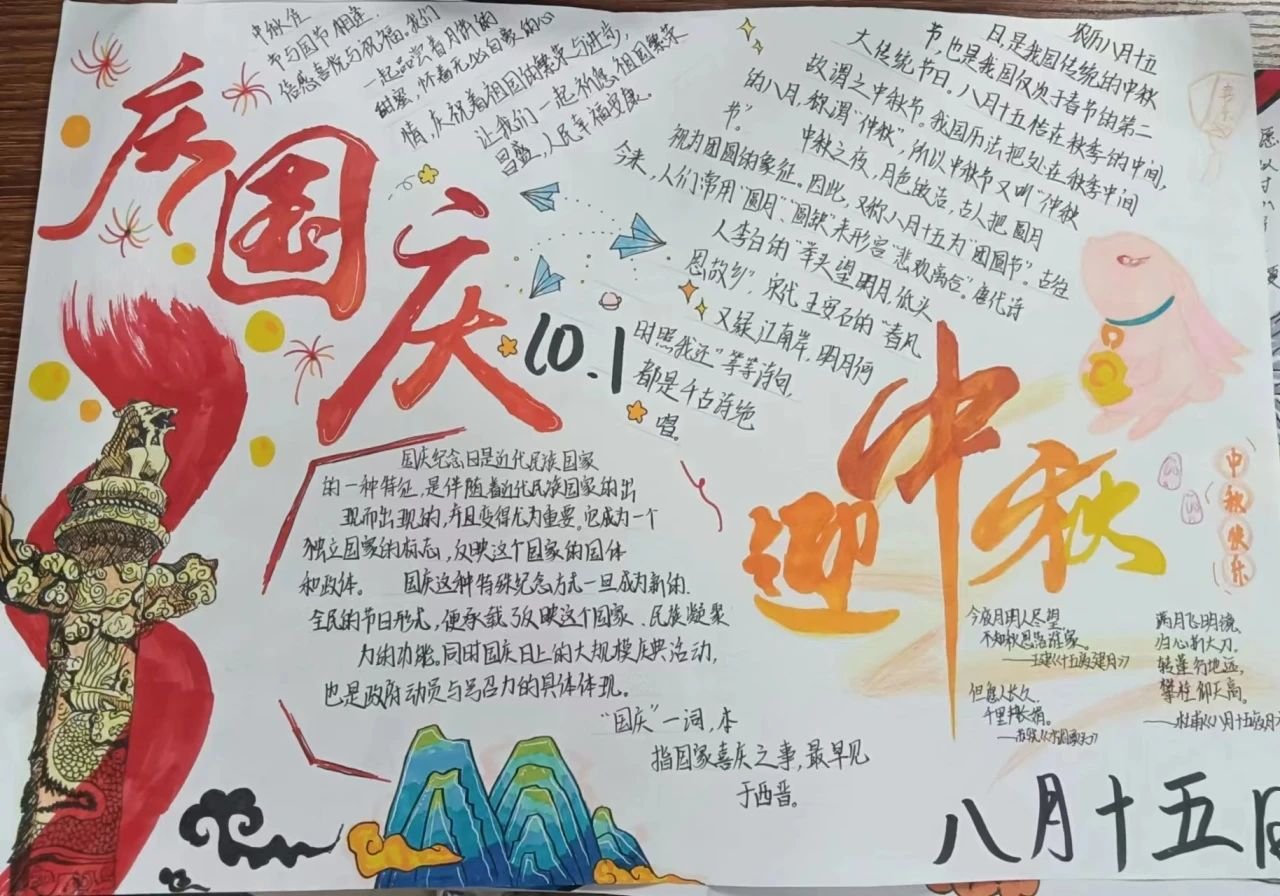 庆国庆
中秋佳
节与国节相逢,
倍感喜悦与祝福,我们
一起品尝着月饼的
甜蜜,怀着无比自豪的心
情,庆祝着祖国的繁荣与进步,
让我们一起祈愿,祖国繁荣
昌盛,人民幸福安康。
农历八月十五
日,是我国传统的中秋
节,也是我国仅次于春节的第二
大传统节日。八月十五恰在秋季的中间,
故谓之中秋节。我国历法把处在秋季中间
的八月,称谓“仲秋”,所以中秋节又叫“仲秋
节”。
中秋之夜,月色皎洁,古人把圆月
视为团圆的象征。因此,又称八月十五为“团圆节”。古往
今来,人们常用“圆月”、“圆缺”来形容“悲欢离合”。唐代诗
人李白的“举头望明月,低头
思故乡”,宋代王安石的“春风
又绿江南岸,明月何
时照我还”等等诗句,
都是千古诗绝
唱。
10.1
国庆纪念日是近代民族国家
的一种特征,是伴随着近代民族国家的出
现而出现的,并且变得尤为重要。它成为一个
独立国家的标志,反映这个国家的国体
和政体。 国庆这种特殊纪念方式一旦成为新的.
全民的节日形式,便承载了反映这个国家、民族凝聚
力的功能。同时国庆日上的大规模庆典活动,
也是政府动员与号召力的具体体现。
“国庆”一词,本
指国家喜庆之事,最早见
于西晋。
迎中秋
中秋快乐
今夜月明人尽望,
不知秋思落谁家。
——王建《十五夜望月》
但愿人长久,
千里共长娟。
——苏轼《水调歌头》
满月飞明镜,
归心折大刀。
转蓬行地远,
攀桂仰天高。
——杜甫《八月十五夜月》
八月十五日